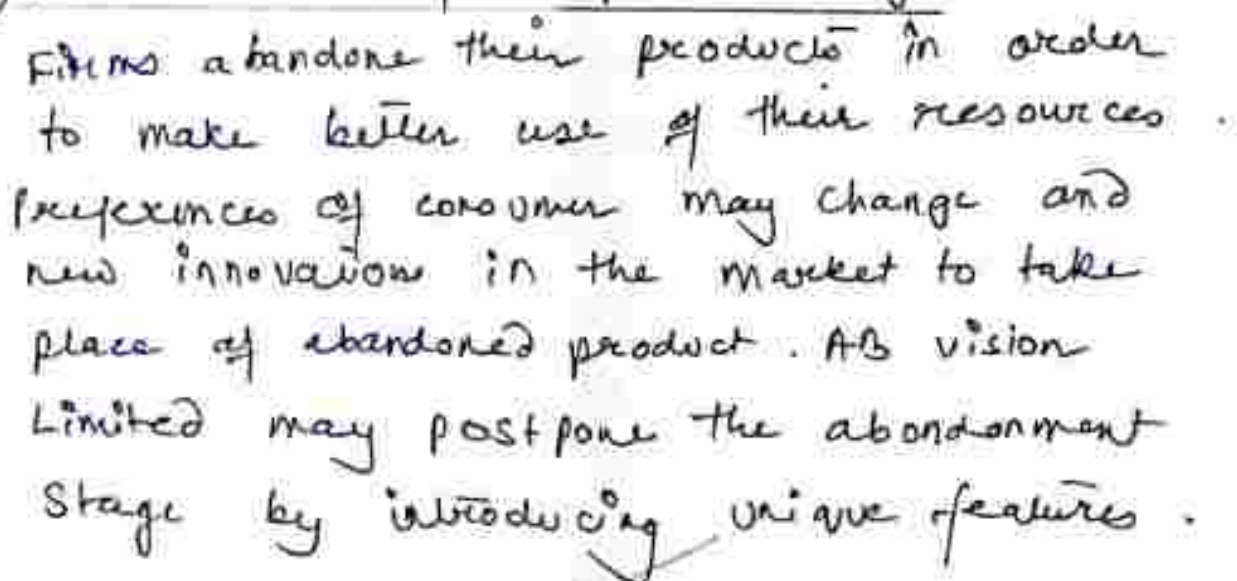 Firms abandone their products in order
to make better use of their resources.
Preferences of consumer may change and
new innovations in the market to take
place of abandoned product. AB vision
Limited may postpone the abondonment
Stage by introducing unique features.